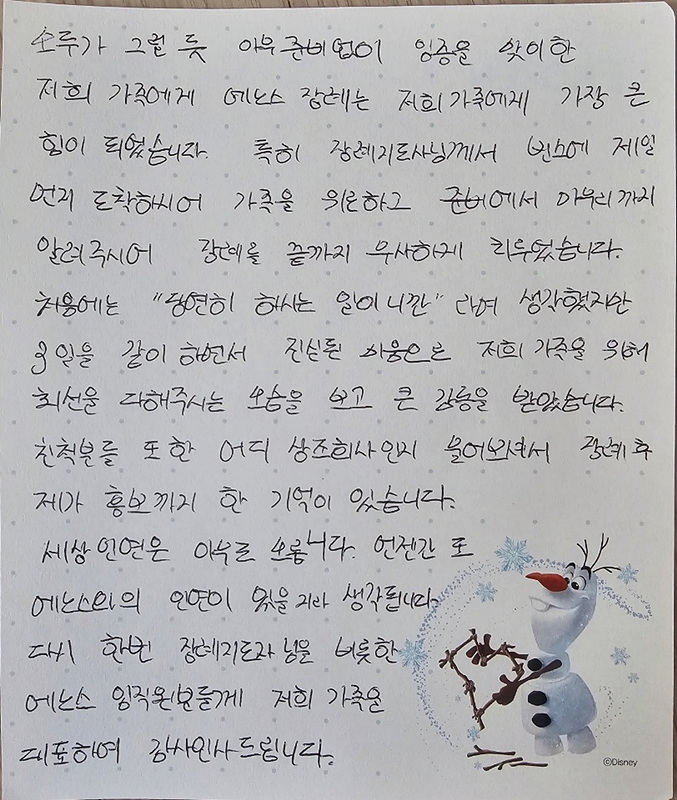 모두가 그럴 듯 아무 준비없이 임종을 맞이한
저희 가족에게 에논스 장례는 저희 가족에게 가장 큰
힘이 되었습니다. 특히 장례지도사님께서 빈소에 제일
먼저 도착하시어 가족을 위로하고 준비에서 마무리까지
알려주시어 장례를 끝까지 무사하게 치루었습니다.
처음에는 "당연히 하시는 일이니깐" 라며 생각했지만
3일을 같이 하면서 진실된 마음으로 저희 가족을 위해
최선을 다해주시는 모습을 보고 큰 감동을 받았습니다.
친척분들 또한 어디 상조회사인지 물어보셔서 장례 후
제가 홍보까지 한 기억이 있습니다.
세상 인연은 아무도 모릅니다. 언젠간 또
에논스와의 인연이 있을거라 생각됩니다.
다시 한번 장례지도사님을 비롯한
에논스 임직원분들께 저희 가족을
대표하여 감사인사드립니다.
©Disney